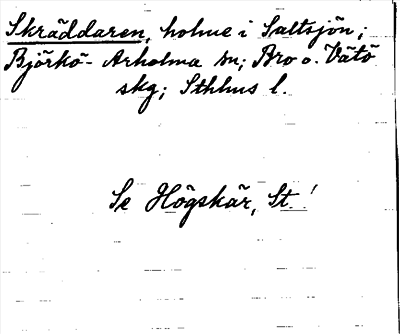 Skräddaren, holme i Saltsjön;
Björkö-Arholma sn; Bro o. Vätö
skg; Sthlms l.
Se Högskär, St.!